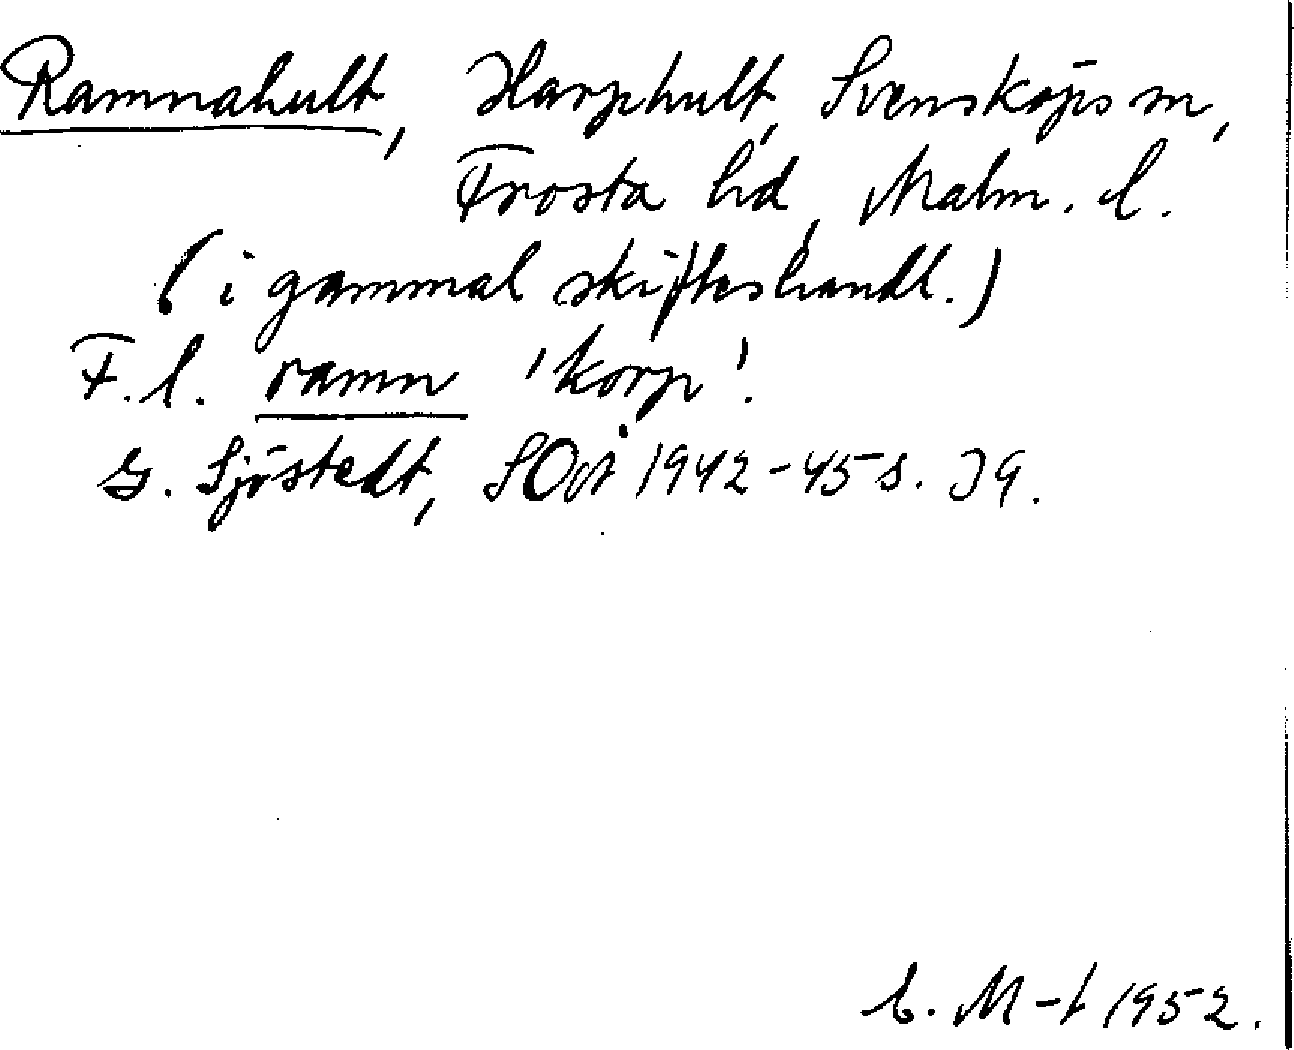 Ramnahult, Harphult, Svensköps sn,
Frosta hd, Malm. l.
(i gammal skifteshandl.)
F.l. ramn 'korp'.
G. Sjöstedt, SOÅ 1942-45 s. 39.
C. M-t 1952.